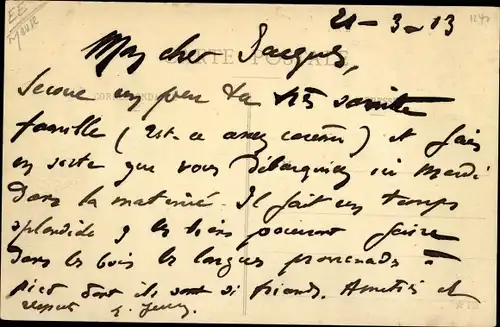 21-3-13
Mon cher Jacques,
CARTE POSTALE
Secoue un peu ta très sainte
famille (Est-ce assez ) et fais
en sorte que vous débarquiez ici mardi
dans la matinée. Il fait un temps
splendide & les tiens pourront faire
dans les bois les longues promenades à
pied dont ils sont si friands. Amitiés et
respect